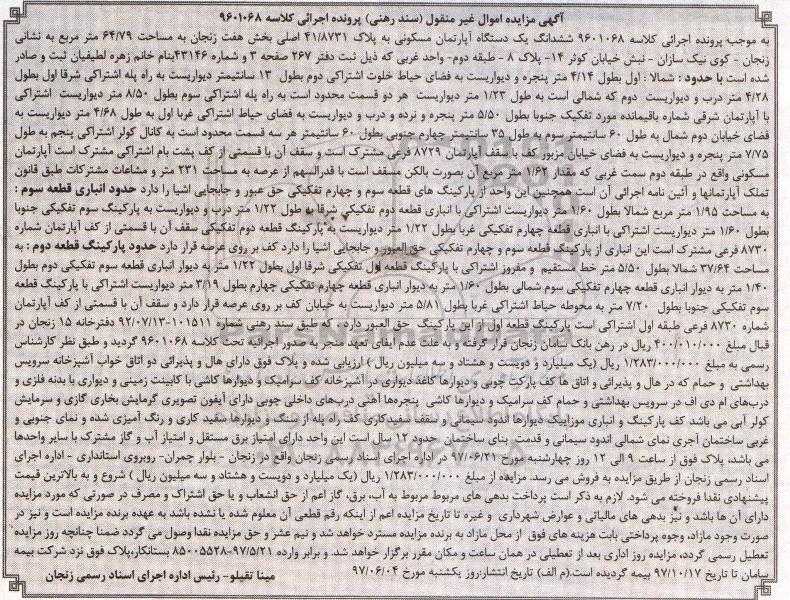 آگهی مزایده اموال غیر منقول (سند رهنی) پرونده اجرائی کلاسه ۹۶۰۱۰۶۸
به موجب پرونده اجرائی کلاسه ۹۶۰۱۰۶۸ ششدانگ یک دستگاه آپارتمان مسکونی به پلاک ۴۱/۸۷۳۱ اصلی بخش هفت زنجان به مساحت ۶۴/۷۹ متر مربع به نشانی
زنجان - کوی نیک سازان - نبش خیابان کوثر ۱۴- پلاک ۸ - طبقه دوم- واحد غربی که ذیل ثبت دفتر ۲۶۷ صفحه ۳ و شماره ۴۳۱۴۶بنام خانم زهره لطیفیان ثبت و صادر
شده است با حدود : شمالا : اول بطول ۴/۱۴ متر پنجره و دیواریست به فضای حیاط خلوت اشتراکی دوم بطول ۱۳ سانتیمتر دیواریست به راه پله اشتراکی شرقا اول بطول
۴/۲۸ متر درب و دیواریست دوم که شمالی است به طول ۱/۲۳ متر دیواریست هر دو قسمت محدود است به راه پله اشتراکی سوم بطول ۸/۵۰ متر دیواریست اشتراکی
با آپارتمان شرقی شماره باقیمانده مورد تفکیک جنوبا بطول ۵/۵۰ متر پنجره و نرده و درب و دیواریست به فضای حیاط اشتراکی غربا اول به طول ۴/۶۸ متر دیواریست به
فضای خیابان دوم شمال به طول ۶۰ سانتیمتر سوم به طول ۳۵ سانتیمتر چهارم جنوبی بطول ۶۰ سانتیمتر هر سه قسمت محدود است به کانال کولر اشتراکی پنجم به طول
۷/۷۵ متر پنجره و دیواریست به فضای خیابان مزبور کف با سقف آپارتمان ۸۷۲۹ فرعی مشترک است و سقف آن با قسمتی از کف پشت بام اشتراکی مشترک است آپارتمان
مسکونی واقع در طبقه دوم سمت غربی که مقدار ۱/۶۲ متر مربع آن بصورت بالکن مسقف است با قدرالسهم از عرصه به مساحت ۲۳۱ متر و مشاعات مشترکات طبق قانون
تملک آپارتمانها و آئین نامه اجرائی آن است همچنین این واحد از پارکینگ های قطعه سوم و چهارم تفکیکی حق عبور و جابجایی اشیا را دارد حدود انباری قطعه سوم :
به مساحت ۱/۹۵ متر مربع شمالا بطول ۱/۶۰ متر دیواریست اشتراکی با انباری قطعه دوم تفکیکی شرقا به طول ۱/۲۲ متر درب و دیواریست به پارکینگ سوم تفکیکی جنوبا
بطول ۱/۶۰ متر دیواریست اشتراکی با انباری قطعه چهارم تفکیکی غربا بطول ۱/۲۲ متر دیواریست به پارکینگ قطعه دوم تفکیکی سقف آن با قسمتی از کف آپارتمان شماره
۸۷۳۰ فرعی مشترک است این انباری از پارکینگ قطعه سوم و چهارم تفکیکی حق العبور و جابجایی اشیا را دارد کف بر روی عرصه قرار دارد حدود پارکینگ قطعه دوم : به
مساحت ۳۷/۶۴ شمالا بطول ۵/۵۰ متر خط مستقیم و مفروز اشتراکی با پارکینگ قطعه اول تفکیکی شرقا اول بطول ۱/۲۲ متر به دیوار انباری قطعه سوم تفکیکی دوم بطول
۱/۴۰ متر به دیوار انباری قطعه چهارم تفکیکی سوم شمالی بطول ۱/۶۰ متر به دیوار انباری قطعه چهارم تفکیکی چهارم بطول ۳/۱۹ متر دیواریست اشتراکی با پارکینگ قطعه
سوم تفکیکی جنوبا بطول ۷/۲۰ متر به محوطه حیاط اشتراکی غربا بطول ۵/۸۱ متر دیواریست به خیابان کف بر روی عرصه قرار دارد و سقف آن با قسمتی از کف آپارتمان
شماره ۸۷۳۰ فرعی طبقه اول اشتراکی است پارکینگ قطعه اول از این پارکینگ حق العبور دارد.که طبق سند رهنی شماره ۱۰۱۵۱۱-۹۲/۰۷/۱۳ دفترخانه ۱۵ زنجان در
قبال مبلغ ۴۰۰/۰۱۰/۰۰۰ ریال در رهن بانک سامان زنجان قرار گرفته و به علت عدم ایفای تعهد منجر به صدور اجرائیه تحت کلاسه ۹۶۰۱۰۶۸ گردید و طبق نظر کارشناس
رسمی به مبلغ ۱/۲۸۳/۰۰۰/۰۰۰ ریال (یک میلیارد و دویست و هشتاد و سه میلیون ریال ) ارزیابی شده و پلاک فوق دارای هال و پذیرائی دو اتاق خواب آشپزخانه سرویس
بهداشتی و حمام که در هال و پذیرائی و اتاق ها کف پارکت چوبی و دیوارها کاغذ دیواری در آشپزخانه کف سرامیک و دیوارها کاشی با کابینت زمینی و دیواری با بدنه فلزی و
درب‌های ام دی اف در سرویس بهداشتی و حمام کف سرامیک و دیوارها کاشی پنجره‌ها آهنی درب‌های داخلی چوبی دارای آیفون تصویری گرمایش بخاری گازی و سرمایش
کولر آبی می باشد کف پارکینگ و انباری موزاییک دیوارها اندود سیمانی و سقف سفیدکاری کف راه پله از سنگ و دیوارها سفید کاری و رنگ آمیزی شده و نمای جنوبی و
غربی ساختمان آجری نمای شمالی اندود سیمانی و قدمت بنای ساختمان حدود ۱۲ سال است این واحد دارای امتیاز برق مستقل و امتیاز آب و گاز مشترک با سایر واحدها
می باشد، پلاک فوق از ساعت ۹ الی ۱۲ روز چهارشنبه مورخ ۹۷/۰۶/۲۱ در اداره اجرای اسناد رسمی زنجان واقع در زنجان - بلوار چمران- روبروی استانداری - اداره اجرای
اسناد رسمی زنجان از طریق مزایده به فروش می رسد. مزایده از مبلغ ۱/۲۸۳/۰۰۰/۰۰۰ ریال (یک میلیارد و دویست و هشتاد و سه میلیون ریال ) شروع و به بالاترین قیمت
پیشنهادی نقدا فروخته می شود. لازم به ذکر است پرداخت بدهی های مربوط مربوط به آب، برق، گاز اعم از حق انشعاب و یا حق اشتراک و مصرف در صورتی که مورد مزایده
دارای آن ها باشد و نیز بدهی های مالیاتی و عوارض شهرداری و غیره تا تاریخ مزایده اعم از اینکه رقم قطعی آن معلوم شده یا نشده باشد به عهده برنده مزایده است و نیز در
صورت وجود مازاد، وجوه پرداختی بابت هزینه های فوق از محل مازاد به برنده مزایده مسترد خواهد شد و نیم عشر و حق مزایده نقدا وصول می گردد ضمنا چنانچه روز مزایده
تعطیل رسمی گردد، مزایده روز اداری بعد از تعطیلی در همان ساعت و مکان مقرر برگزار خواهد شد. و برابر وارده ۹۷/۵/۲۱-۸۵۰۰۵۵۲۸ بستانکار،پلاک فوق نزد شرکت بیمه
سامان تا تاریخ ۹۷/۱۰/۱۷ بیمه گردیده است.(م الف) تاریخ انتشار:روز یکشنبه مورخ ۹۷/۰۶/۰۴
مینا تقیلو- رئیس اداره اجرای اسناد رسمی زنجان